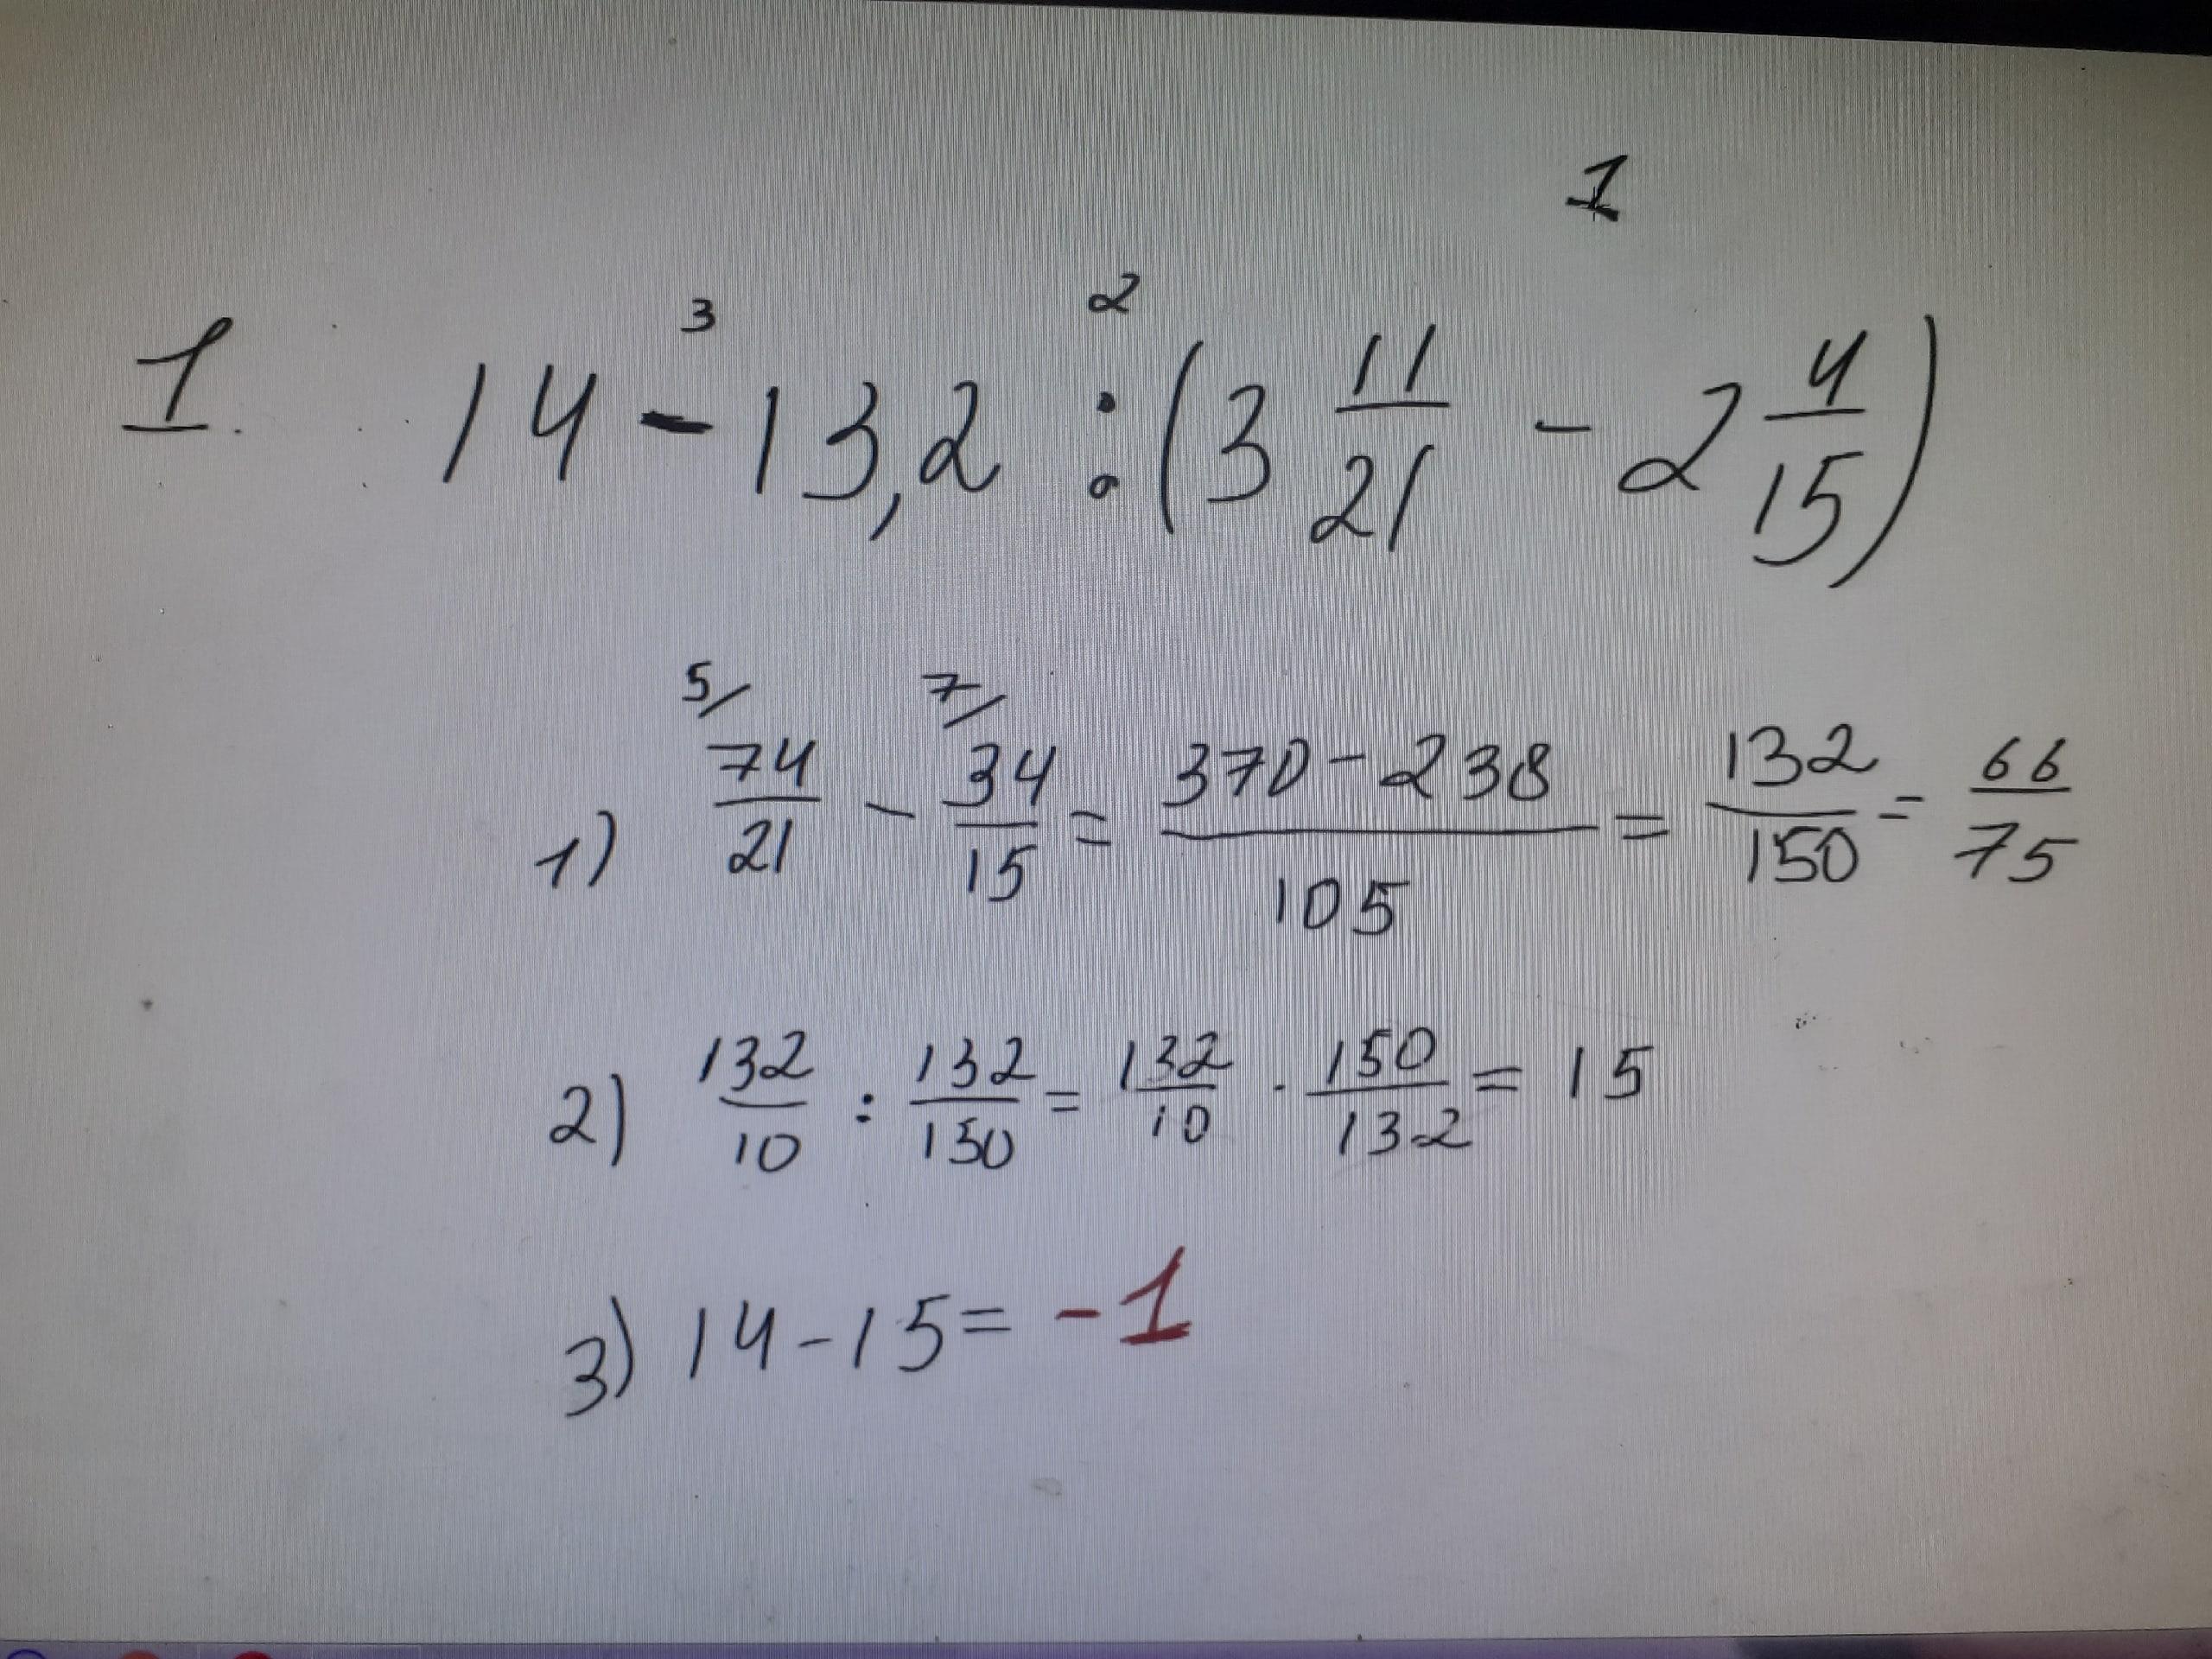 1
3 2
1. 14 - 13,2 : (3 11/21 - 2 4/15)
5/ 7/
1) 74/21 - 34/15 = 370 - 238/105 = 132/150 = 66/75
2) 132/10 : 132/150 = 132/10 · 150/132 = 15
3) 14 - 15 = -1